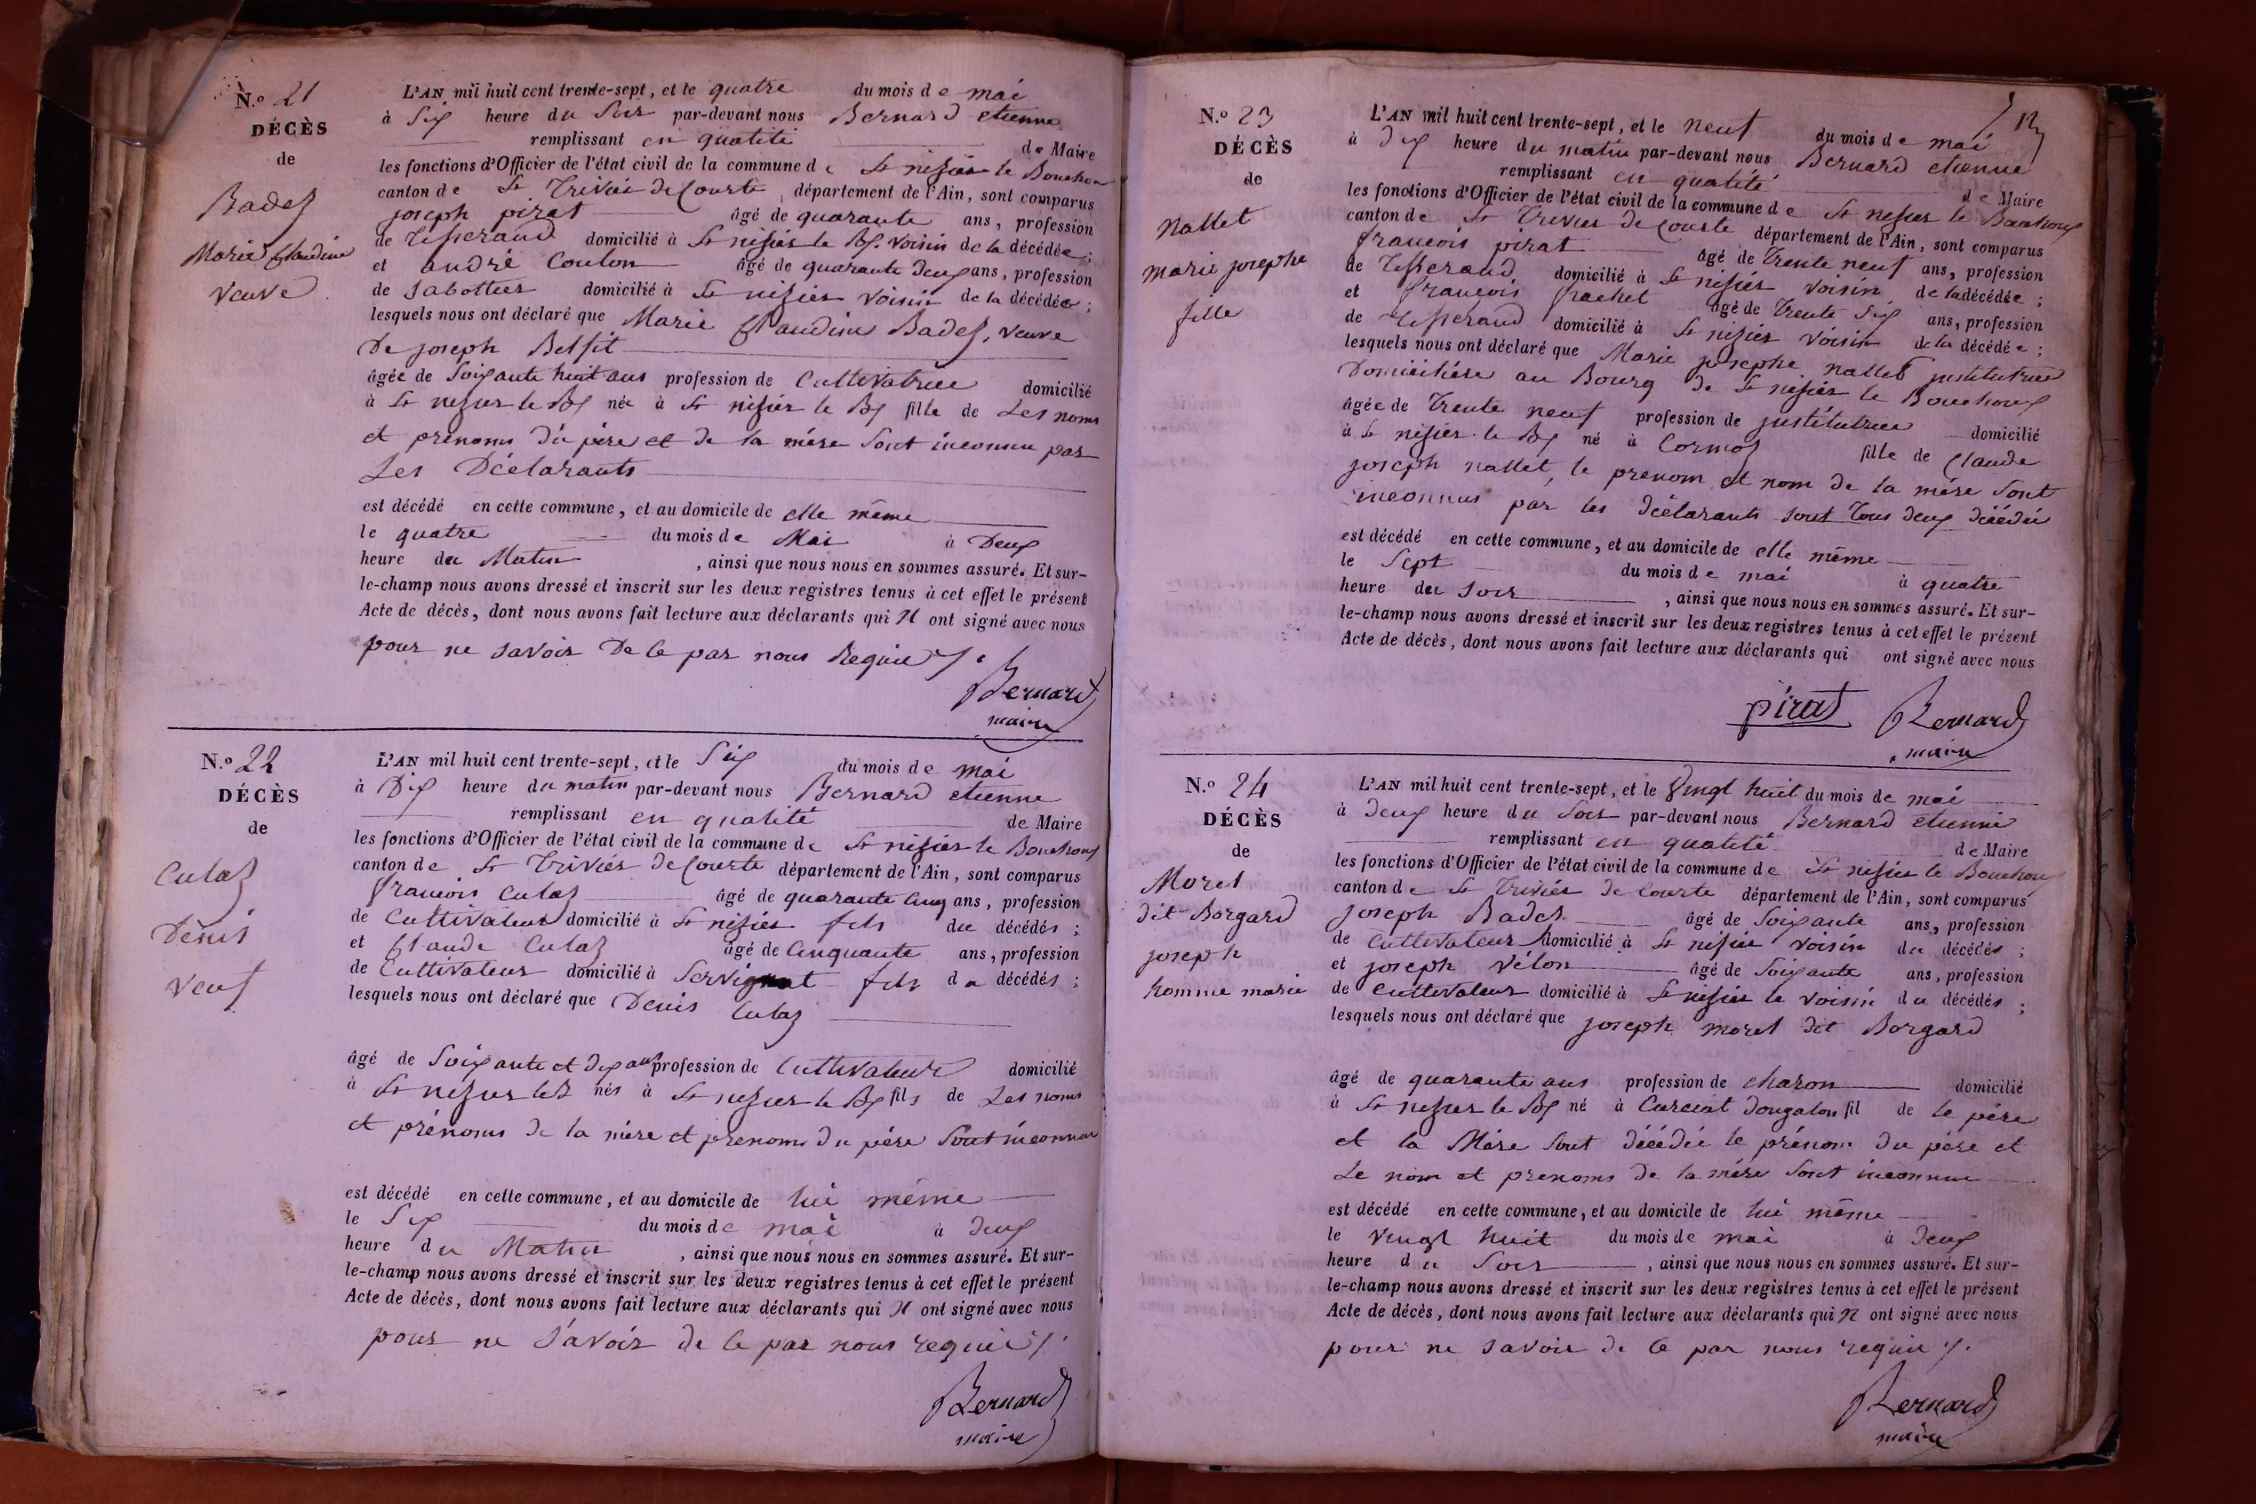 N.º 21
DÉCÈS
de
Badez
Marie Claudine
veuve
L'AN mil huit cent trente-sept, et le quatre du mois de mai
à Six heure du Soir par-devant nous Bernard etienne
remplissant en qualité de Maire
les fonctions d'Officier de l'état civil de la commune de St nizier le Bouchoux
canton de St Trivier de Courte département de l'Ain, sont comparus
joseph pirat âgé de quarante ans, profession
de Tisserand domicilié à St nizier le Bx voisin de la décédée;
et andré Coulon âgé de quarante deux ans, profession
de Sabottier domicilié à St nizier voisin de la décédée;
lesquels nous ont déclaré que Marie Claudine Badez, veuve
De joseph Belfit
âgée de Soixante huit ans profession de Cultivatrice domicilié
à St nizier le Bx née à St nizier le Bx fille de Les noms
et prénoms du père et de la mére Sont inconnu par
Les Déclarants
est décédé en cette commune, et au domicile de elle même
le quatre du mois de Mai à Deux
heure du Matin, ainsi que nous nous en sommes assuré. Et sur-
le-champ nous avons dressé et inscrit sur les deux registres tenus à cet effet le présent
Acte de décès, dont nous avons fait lecture aux déclarants qui N ont signé avec nous
pour ne savoir De ce par nous Requie
Bernard
maire
N.º 22
DÉCÈS
de
Culaz
Denis
veuf
L'AN mil huit cent trente-sept, et le Six du mois de mai
à Dix heure du matin par-devant nous Bernard etienne
remplissant en qualité de Maire
les fonctions d'Officier de l'état civil de la commune de St nizier le Bouchoux
canton de St Trivier de Courte département de l'Ain, sont comparus
francois Culaz âgé de quarante Cinq ans, profession
de Cultivateur domicilié à St nizier fils du décédés;
et Claude Culaz âgé de Cinquante ans, profession
de Cultivateur domicilié à Servignat fils du décédés;
lesquels nous ont déclaré que Denis Culaz
âgé de Soixante et dix ans profession de Cultivateur domicilié
à St nizier le B nés à St nizier le Bx fils de Les noms
et prénoms de la mére et prenoms du père Sont inconnu
est décédé en cette commune, et au domicile de lui même
le Six du mois de mai à deux
heure du Matin, ainsi que nous nous en sommes assuré. Et sur-
le-champ nous avons dressé et inscrit sur les deux registres tenus à cet effet le présent
Acte de décès, dont nous avons fait lecture aux déclarants qui N ont signé avec nous
pour ne Savoir de ce par nous requie
Bernard
maire
12
N.º 23
DÉCÈS
de
Nallet
marie josephe
fille
L'AN mil huit cent trente-sept, et le neuf du mois de mai
à Dix heure du matin par-devant nous Bernard etienne
remplissant en qualité de Maire
les fonctions d'Officier de l'état civil de la commune de St nizier le Bouchoux
canton de St Trivier de Courte département de l'Ain, sont comparus
francois pirat âgé de Trente neuf ans, profession
de Tisserand domicilié à St nizier voisin de la décédée;
et francois frachet âgé de Trente Six ans, profession
de Tisserand domicilié à St nizier voisin de la décédée;
lesquels nous ont déclaré que Marie josephe nallet institutrice
Domiciliére au Bourg de St nizier le Bouchoux
âgée de Trente neuf profession de institutrice domicilié
à St nizier le Bx né à Cormoz fille de Claude
joseph nallet, le prenom et nom de la mére Sont
inconnus par les déclarants sont Tous deux décédés
est décédé en cette commune, et au domicile de elle même
le Sept du mois de mai à quatre
heure du soir, ainsi que nous nous en sommes assuré. Et sur-
le-champ nous avons dressé et inscrit sur les deux registres tenus à cet effet le présent
Acte de décès, dont nous avons fait lecture aux déclarants qui ont signé avec nous
pirat Bernard
maire
N.º 24
DÉCÈS
de
Morel
dit Borgard
joseph
homme marié
L'AN mil huit cent trente-sept, et le Vingt huit du mois de mai
à Deux heure du Soir par-devant nous Bernard etienne
remplissant en qualité de Maire
les fonctions d'Officier de l'état civil de la commune de St nizier le Bouchoux
canton de St Trivier de Courte département de l'Ain, sont comparus
joseph Badez âgé de Soixante ans, profession
de Cultivateur domicilié à St nizier voisin du décédés;
et joseph vélon âgé de Soixante ans, profession
de Cultivateur domicilié à St nizier le voisin du décédés;
lesquels nous ont déclaré que joseph morel dit Borgard
âgé de quarante ans profession de charon domicilié
à St nizier le Bx né à Curciat dongalon fil de le père
et la Mére Sont décédé le prénom du père et
Le nom et prenoms de la mére Sont inconnu
est décédé en cette commune, et au domicile de lui même
le Vingt huit du mois de mai à Deux
heure du Soir, ainsi que nous nous en sommes assuré. Et sur-
le-champ nous avons dressé et inscrit sur les deux registres tenus à cet effet le présent
Acte de décès, dont nous avons fait lecture aux déclarants qui N ont signé avec nous
pour ne savoir de ce par nous requie
Bernard
maire